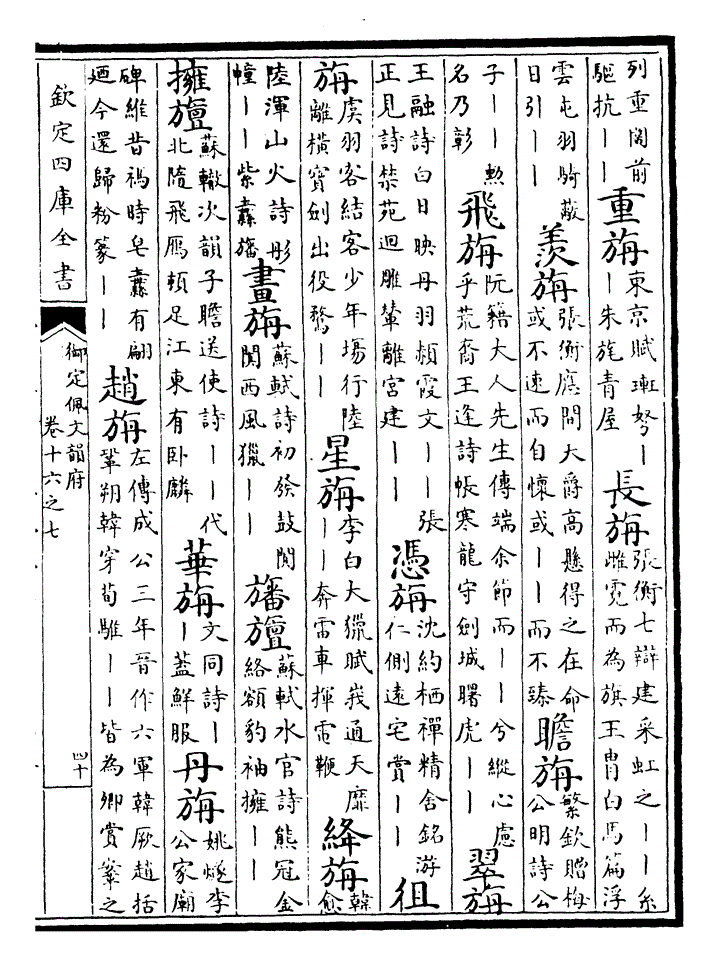 列重閣前驅抗｜｜重旃㻞弩｜東京賦｜朱旄青屋長旃張衡七辯建采虹之｜｜糸雌霓而為旗王胄白馬篇浮
雲屯羽騎蔽日引｜｜羨旃張衡應間大爵高懸得之在命或不速而自懷或｜｜而不臻瞻旃繁欽贈梅公明詩公
子｜｜勲名乃彰飛旃阮籍大人先生傳端余節而｜｜兮縱心慮乎荒裔王逢詩帳寒龍守劍城曙虎｜｜翠旃
王融詩白日映丹羽頳霞文｜｜張正見詩禁苑迴雕輦離宮建｜｜憑旃沈約栖禪精舍銘游仁側遠宅賞｜｜徂
旃虞羽客結客少年場行陸離橫寶劍出役騖｜｜星旃李白大獵賦峩通天靡｜｜奔雷車揮電鞭絳旃韓愈
陸渾山火詩彤幢｜｜紫纛旛畫旃蘇軾詩初發鼓閧関西風獵｜｜旛旜蘇軾水官詩熊冠金絡額豹袖擁｜｜
擁旜蘇轍次韻子瞻送使詩｜｜代北隨飛鴈頓足江東有卧麟華旃文同詩｜｜蓋鮮服丹旃姚燧李公家廟
碑維昔禍時皂纛有翩廼今還歸粉篆｜｜趙旃左傳成公三年晉作六軍韓厥趙括鞏朔韓穿荀騅｜｜皆為卿賞鞌之
欽定四庫全書
御定佩文韻府
卷十六之七
四十